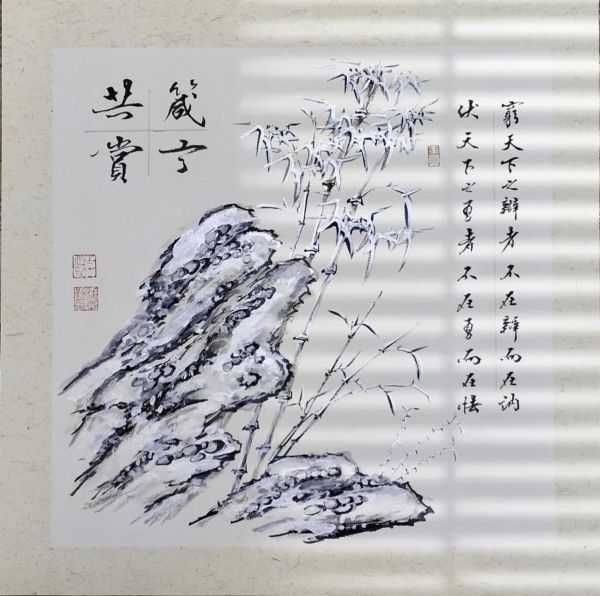 箴言
共賞
窮天下之辩者不在辩而在讷
伏天下之勇者不在勇而在怯